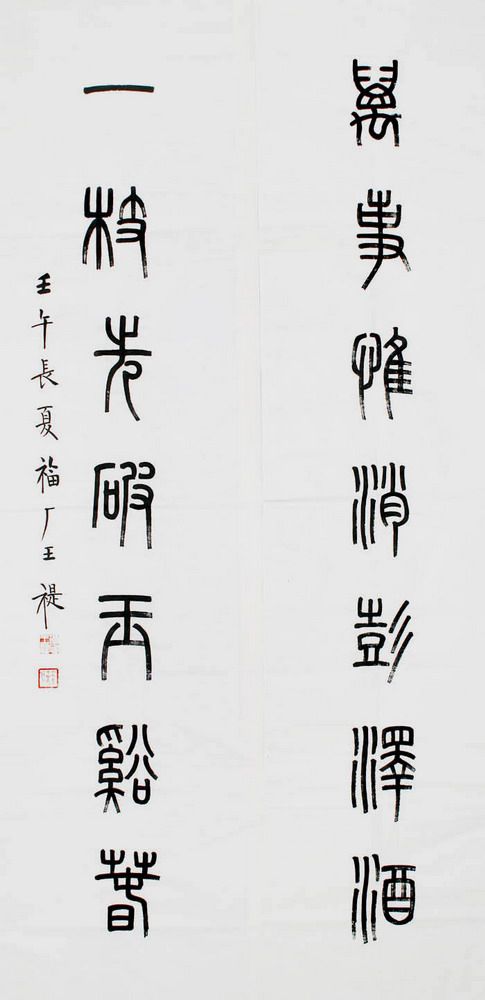 萬事惟消彭澤酒
一枝先破玉谿春
壬午長夏福厂王禔